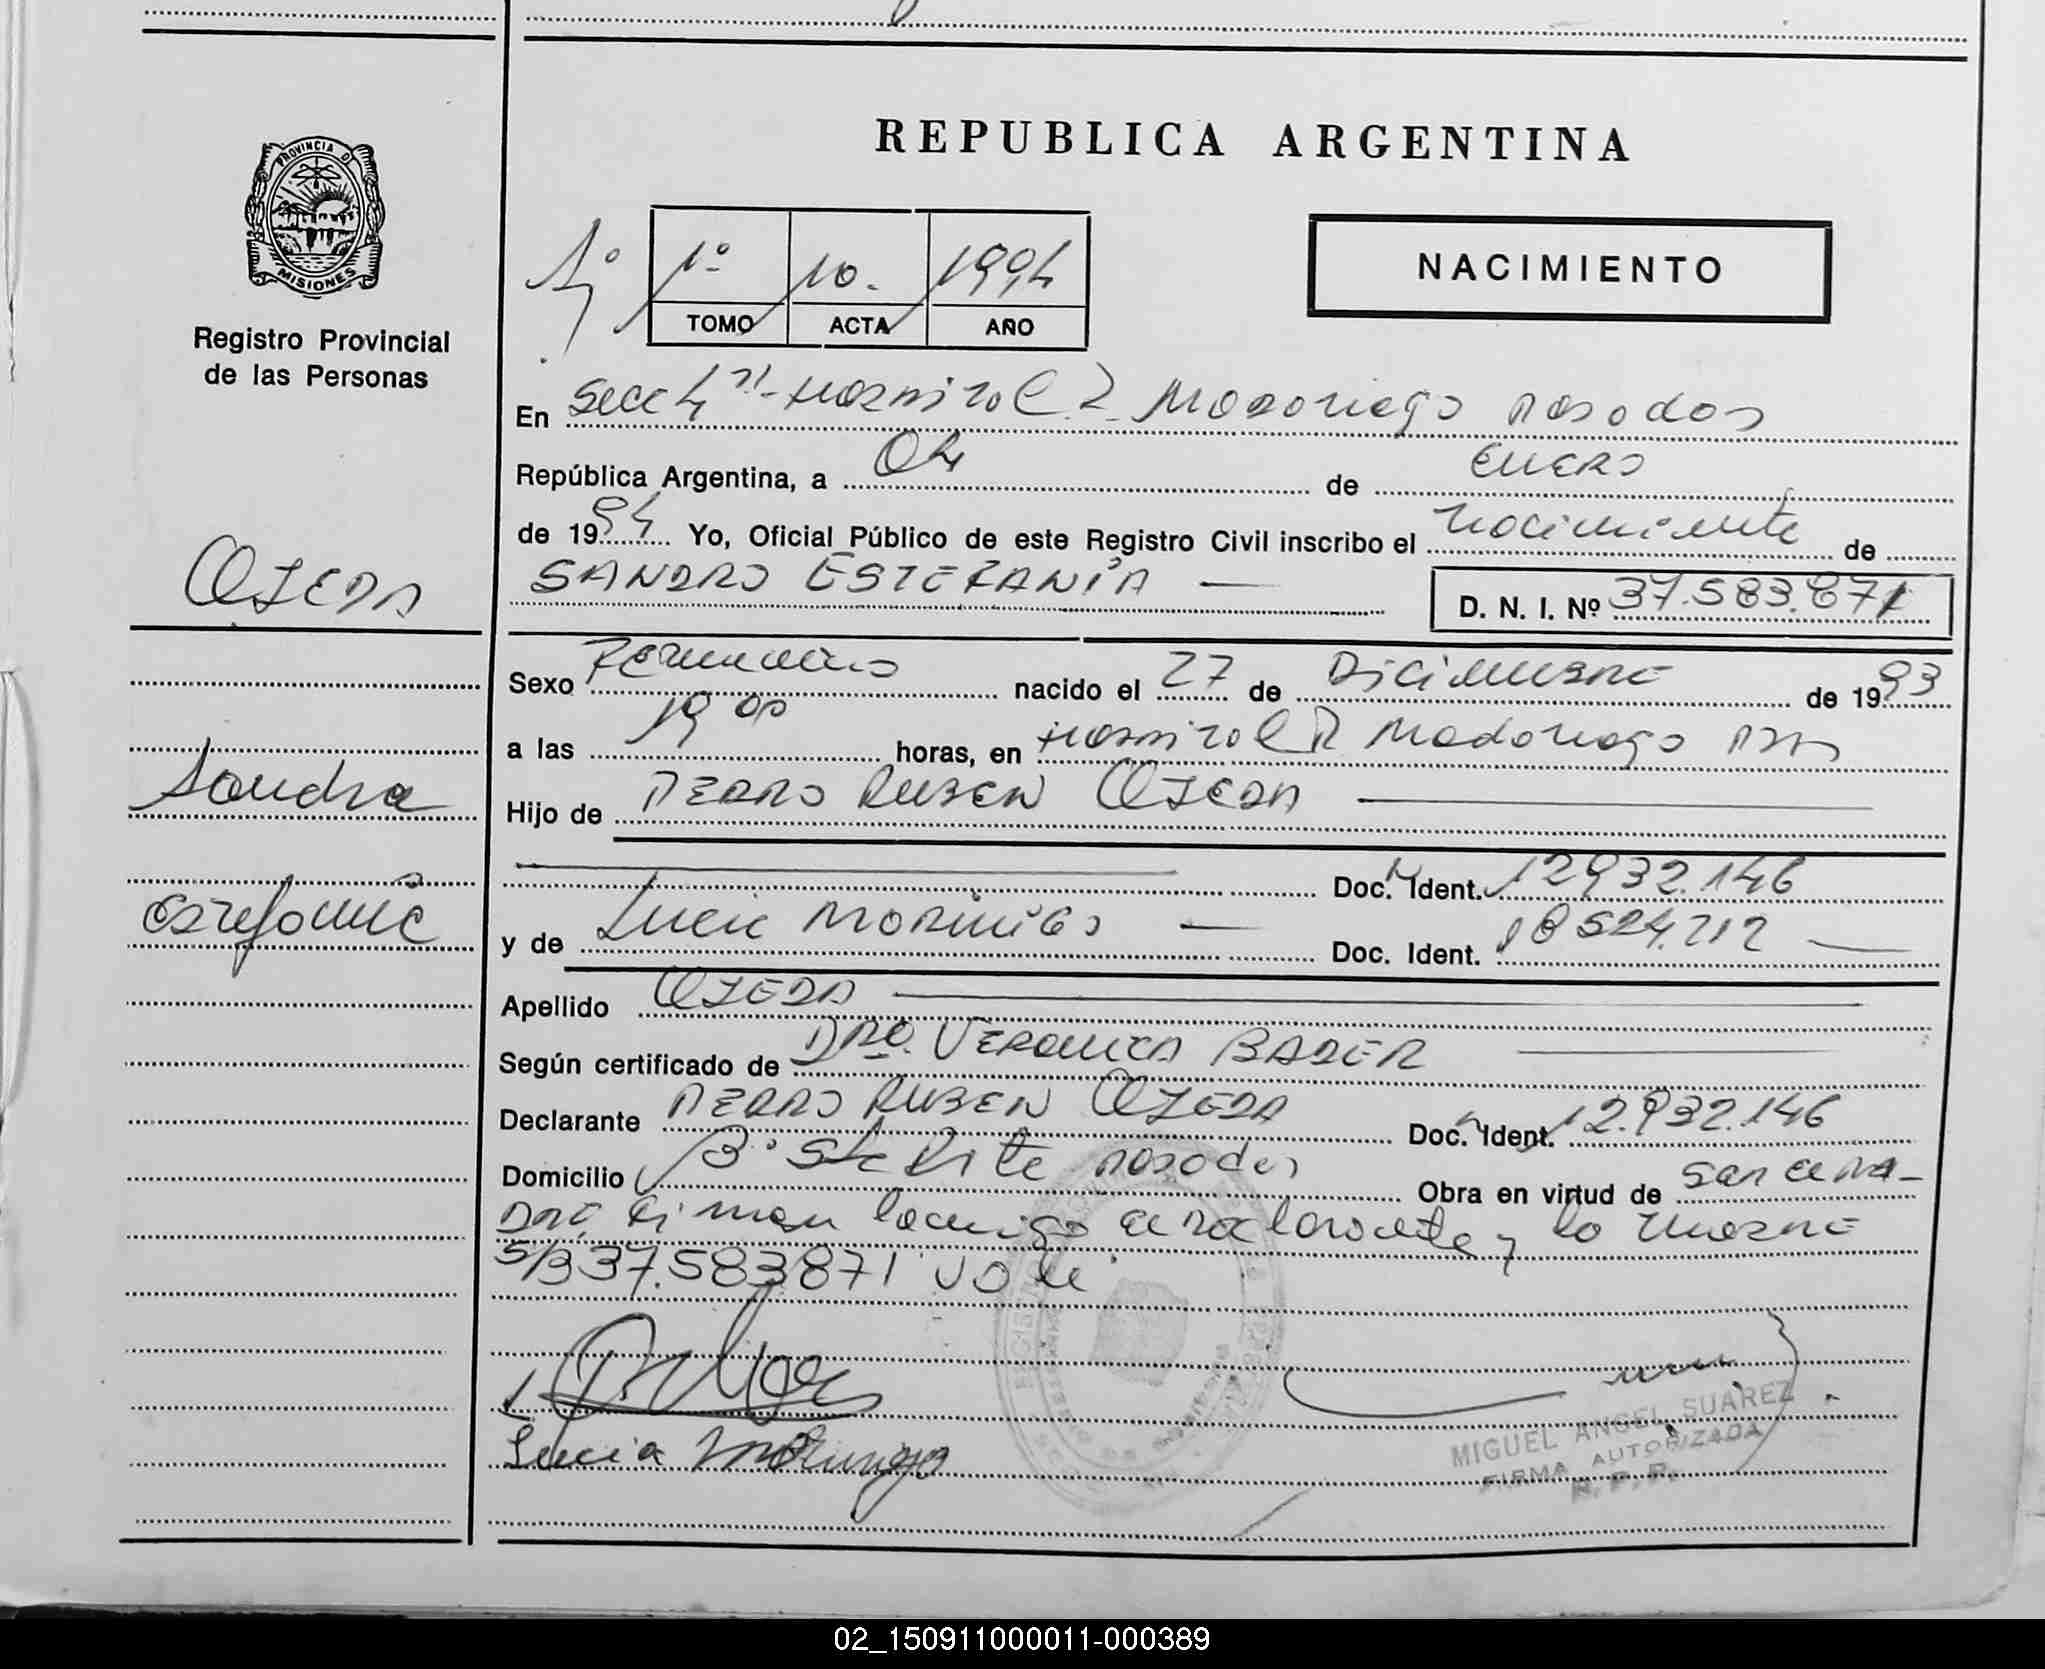 REPUBLICA ARGENTINA
PROVINCIA D
MISIONES
Registro Provincial
de las Personas
1º 1º 10. 1994
TOMO ACTA AÑO
NACIMIENTO
En Secc 4ª Hospital R. Madariaga Posadas
República Argentina, a 04 de ENERO
de 1994 Yo, Oficial Público de este Registro Civil inscribo el nacimiento de
SANDRA ESTEFANIA D. N. I. Nº 37.583.871
OJEDA
Sandra
Estefania
Sexo Femenino nacido el 27 de Diciembre de 1993
a las 19 00 horas, en Hospital R Madariaga Pdas
Hijo de PEDRO RUBEN OJEDA
Doc. Ident. 12932.146
y de Lucia MORINIGO Doc. Ident. 18524.212
Apellido OJEDA
Según certificado de DRA. VERONICA BADER
Declarante PEDRO RUBEN OJEDA Doc. Ident. 12.932.146
Domicilio Bº Sta Rita Posadas Obra en virtud de ser el PA-
DRE firman conmigo el declarante y la MADRE
S/B 37.583871 vale
Lucia Morinigo
MIGUEL ANGEL SUAREZ
FIRMA AUTORIZADA
R. P. P.
02_150911000011-000389